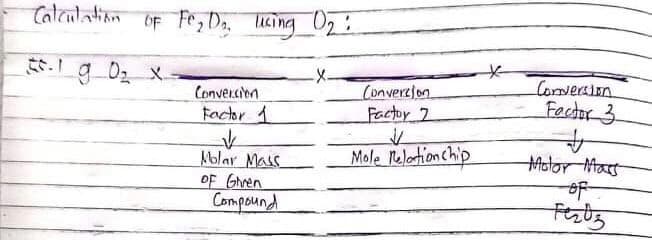 Calculation of Fe₂O₃ using O₂ :
55.1 g O₂ x ——— x ——— x ———
Conversion Conversion Conversion
Factor 1 Factor 2 Factor 3
↓ ↓ ↓
Molar Mass Mole Relationship Molar Mass
of Given of
Compound Fe₂O₃